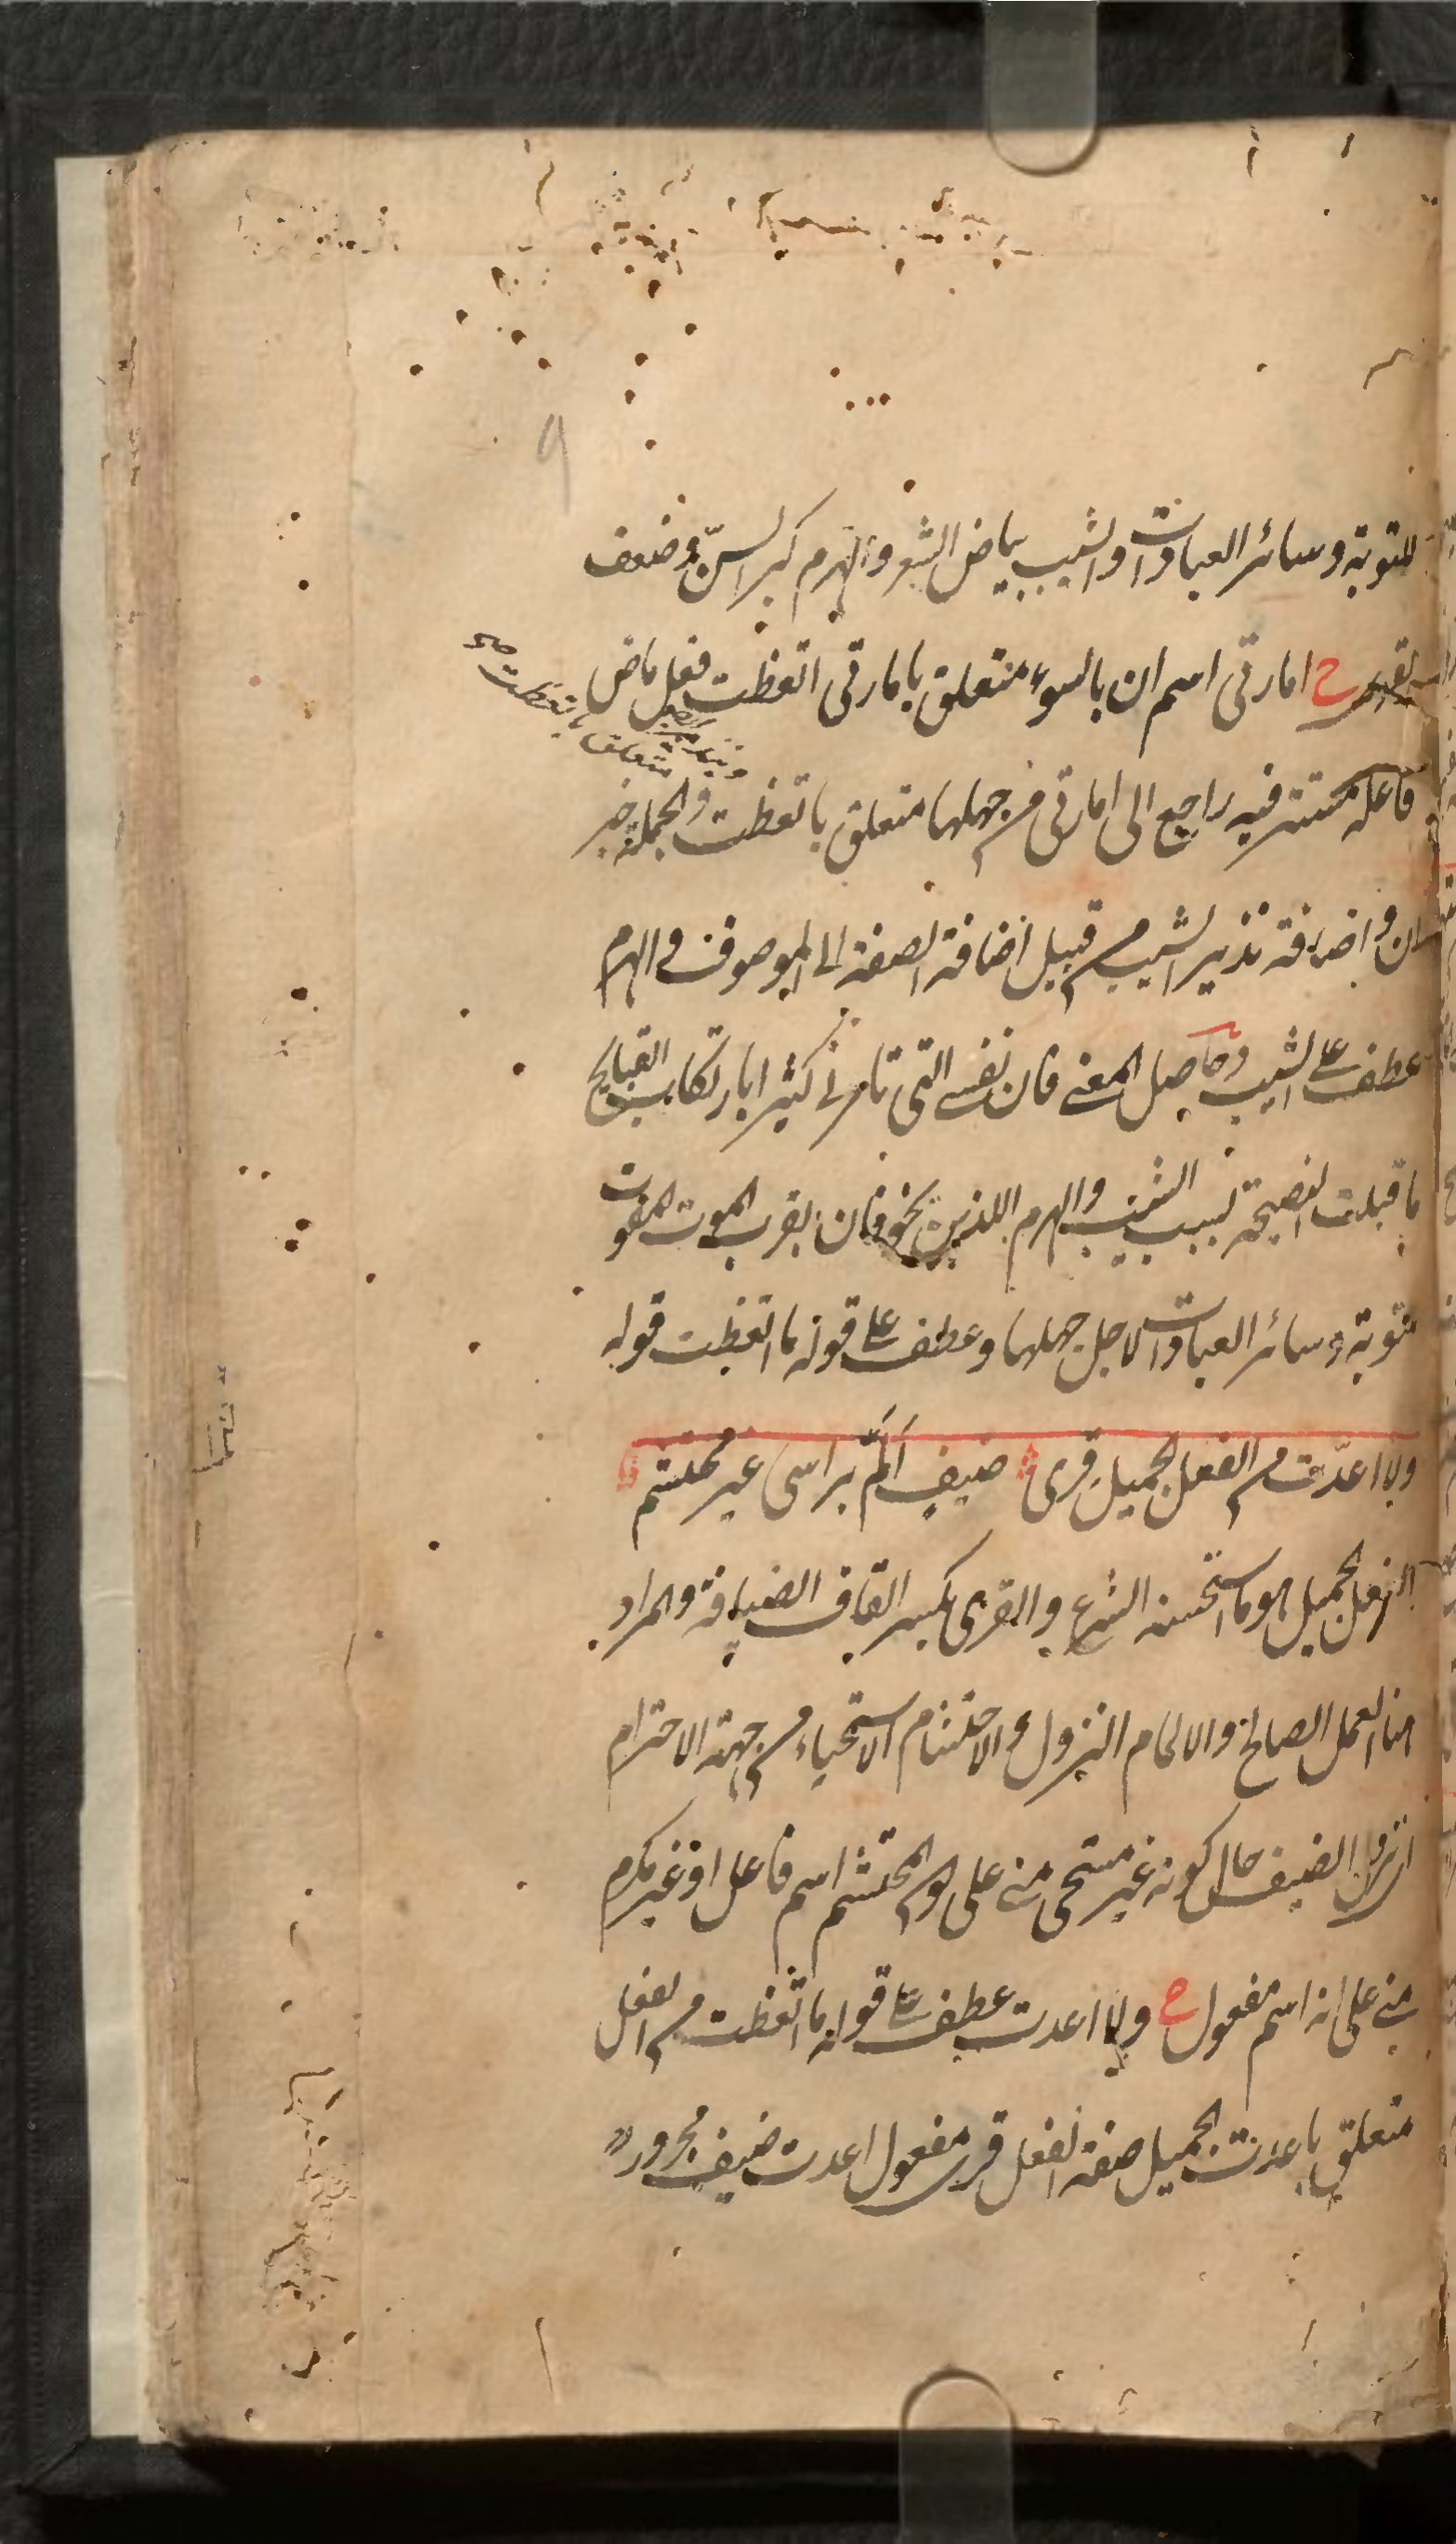 للتوبة وسائر العبادات والشيب بياض الشعر والهرم كبر السن وضعف
ح امارتى اسم ان بالسوء متعلق بامارتى اتعظت فعل ماض
متعلق باتعظت صح
فاعله مستتر فيه راجع الى امارتى من جهلها متعلق باتعظت والجملة خبر
ان واضافة نذير الشيب من قبيل اضافة الصفة الى الموصوف والهرم
عطف على الشيب وحاصل المعنى فان نفسى التى تامرنى كثيرا بارتكاب القبايح
ما قبلت النصيحة بسبب الشيب والهرم اللذين يخوفان بقرب الموت المفوت
للتوبة وسائر العبادات لاجل جهلها وعطف على قوله ما اتعظت قوله
ولا اعدّت من الفعل الجميل قرى ضيفٍ اَلَمَّ براسى غير محتشم
الفعل الجميل هو ما استحسنه الشرع والقرى بكسر القاف الضيافة والمراد
هنا العمل الصالح والالمام النزول والاحتشام الاستحياء من جهة الاحترام
اى نزل الضيف حال كونه غير مستحى منى على ان المحتشم اسم فاعل او غير مكرم
منى على انه اسم مفعول ح ولا اعدت عطف على قوله ما اتعظت من الفعل
متعلق باعدت الجميل صفة الفعل قرى مفعول اعدت ضيف مجرور